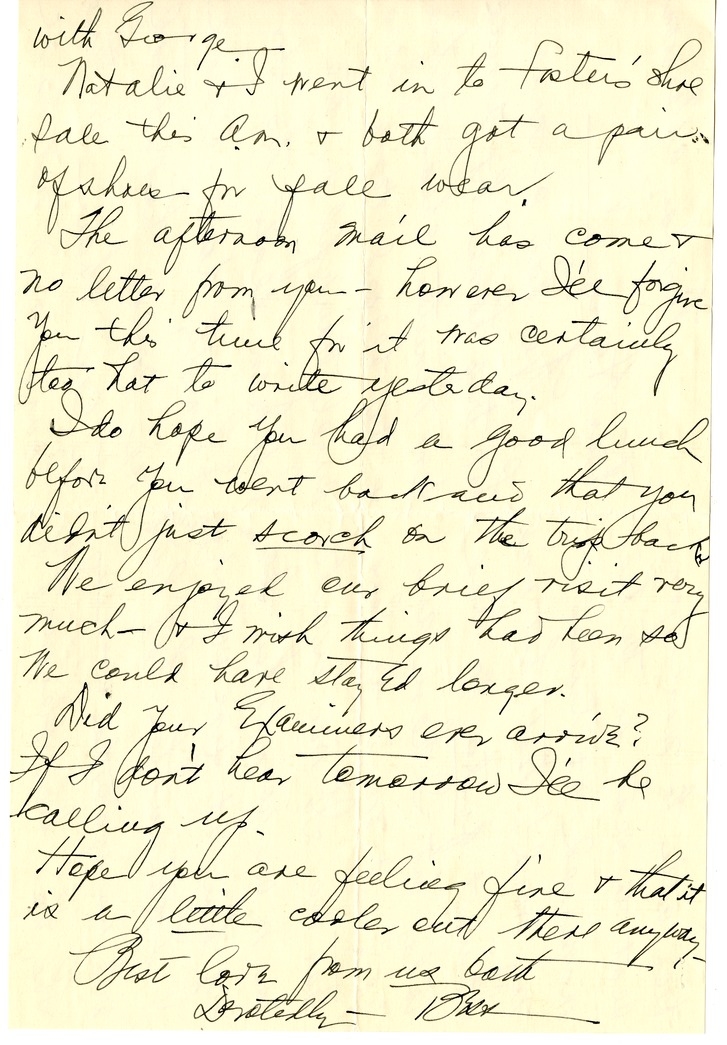 with George
Natalie & I went in to Foster's shoe
sale this A.m. & both got a pair
of shoes for fall wear.
The afternoon mail has come &
no letter from you - however I'll forgive
you this time for it was certainly
too hot to write yesterday.
I do hope you had a good lunch
before you went back and that you
didn't just scorch on the trip back.
We enjoyed our brief visit very
much - & I wish things had been so
we could have stayed longer.
Did your Examiners ever arrive?
If I don't hear tomorrow I'll be
calling up.
Hope you are feeling fine & that it
is a little cooler out there anyway -
Best love from us both
Devotedly - Bess